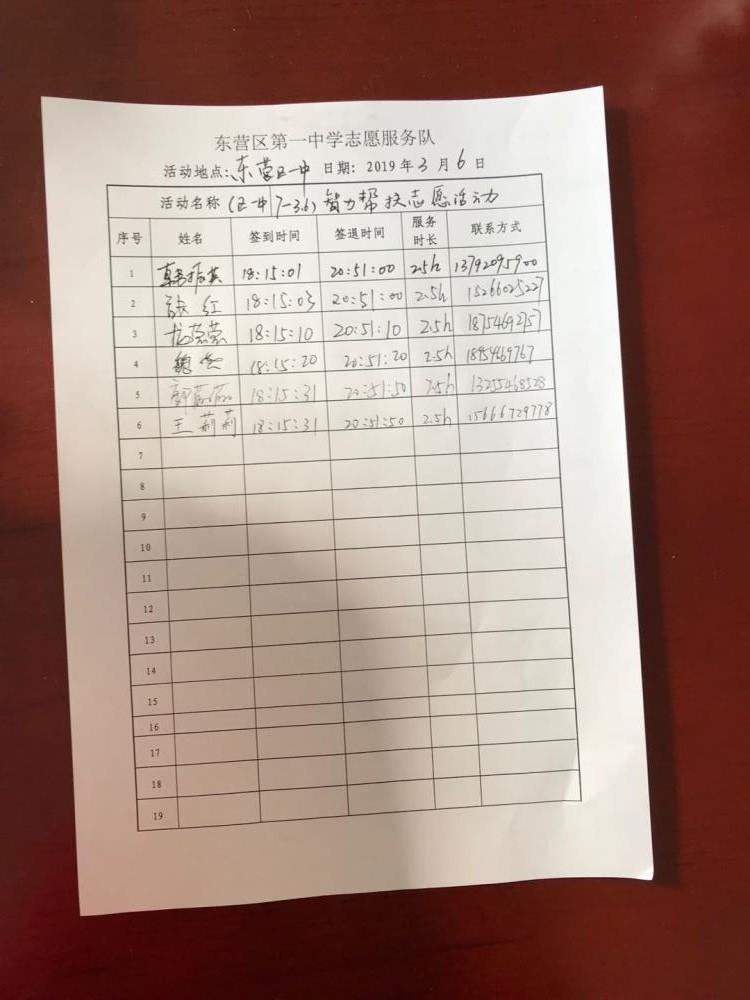 东营区第一中学志愿服务队
活动地点:东营区一中 日期: 2019年3月6日
活动名称 (区一中7-3.6)智力帮扶志愿活动
序号 姓名 签到时间 签退时间 服务时长 联系方式
1 韩振英 18:15:01 20:51:00 2.5h 13792095900
2 张红 18:15:03 20:51:00 2.5h 15266025227
3 尤蒙蒙 18:15:10 20:51:10 2.5h 18754692757
4 18:15:20 20:51:20 2.5h 18954669767
5 18:15:31 20:51:50 2.5h 13255468528
6 王莉莉 18:15:31 20:51:50 2.5h 15666729778
7
8
9
10
11
12
13
14
15
16
17
18
19